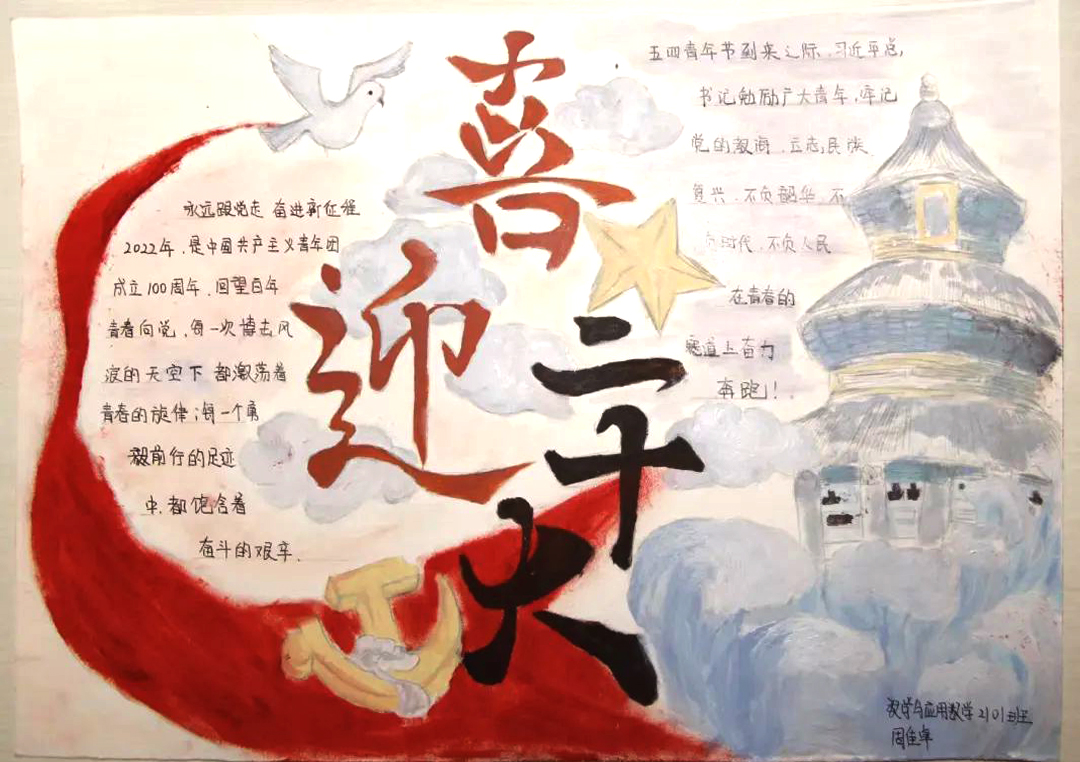 喜迎二十大
永远跟党走 奋进新征程
2022年，是中国共产主义青年团
成立100周年，回望百年
青春向党，每一次搏击风
浪的天空下 都激荡着
青春的旋律；每一个勇
毅前行的足迹
中，都饱含着
奋斗的艰辛．
五四青年节到来之际，习近平总
书记勉励广大青年，牢记
党的教诲，立志民族
复兴，不负韶华，不
负时代，不负人民
在青春的
赛道上奋力
奔跑！
数学与应用数学2101班
周佳卓